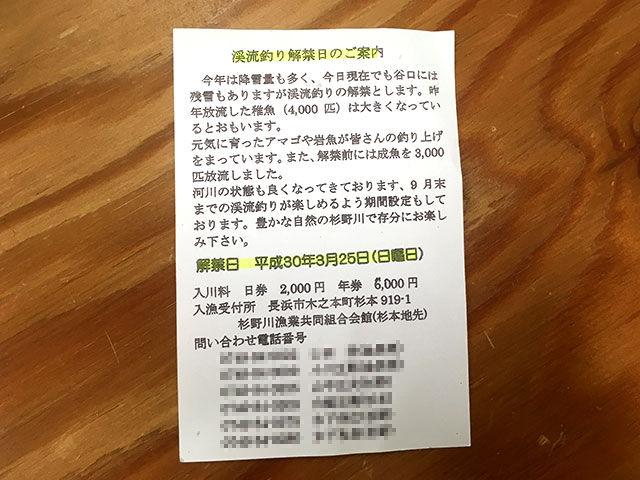 渓流釣り解禁日のご案内
今年は降雪量も多く、今日現在でも谷口には
残雪もありますが渓流釣りの解禁とします。昨
年放流した稚魚（4,000 匹）は大きくなってい
るとおもいます。
元気に育ったアマゴや岩魚が皆さんの釣り上げ
をまっています。また、解禁前には成魚を 3,000
匹放流しました。
河川の状態も良くなってきております、9 月末
までの渓流釣りが楽しめるよう期間設定もして
おります。豊かな自然の杉野川で存分にお楽し
み下さい。
解禁日　平成30年3月25日(日曜日)
入川料　日券　2,000円　年券　6,000円
入漁受付所　長浜市木之本町杉本 919-1
杉野川漁業共同組合会館(杉本地先)
問い合わせ電話番号